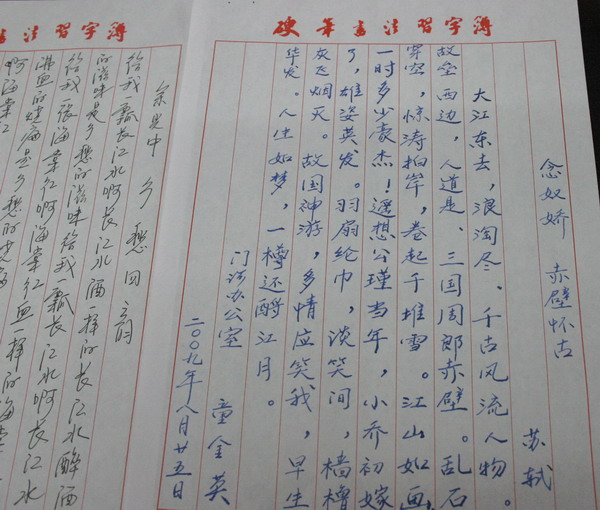 硬筆書法習字簿
念奴娇 赤壁怀古
苏轼
大江东去，浪淘尽、千古风流人物。
故垒西边，人道是、三国周郎赤壁。乱石
穿空，惊涛拍岸，卷起千堆雪。江山如画，
一时多少豪杰！遥想公瑾当年，小乔初嫁
了，雄姿英发。羽扇纶巾，谈笑间，樯橹
灰飞烟灭。故国神游，多情应笑我，早生
华发。人生如梦，一樽还酹江月。
门诊办公室 童金英
二00九年八月廿五日
書法習字簿
余光中 乡愁四韵
给我一瓢长江水啊长江水酒一样的长江水醉酒
的滋味是乡愁的滋味给我一瓢长江水啊长江水
给我一张海棠红啊海棠红血一样的海棠
沸血的烧痛是乡愁的烧痛
啊海棠红